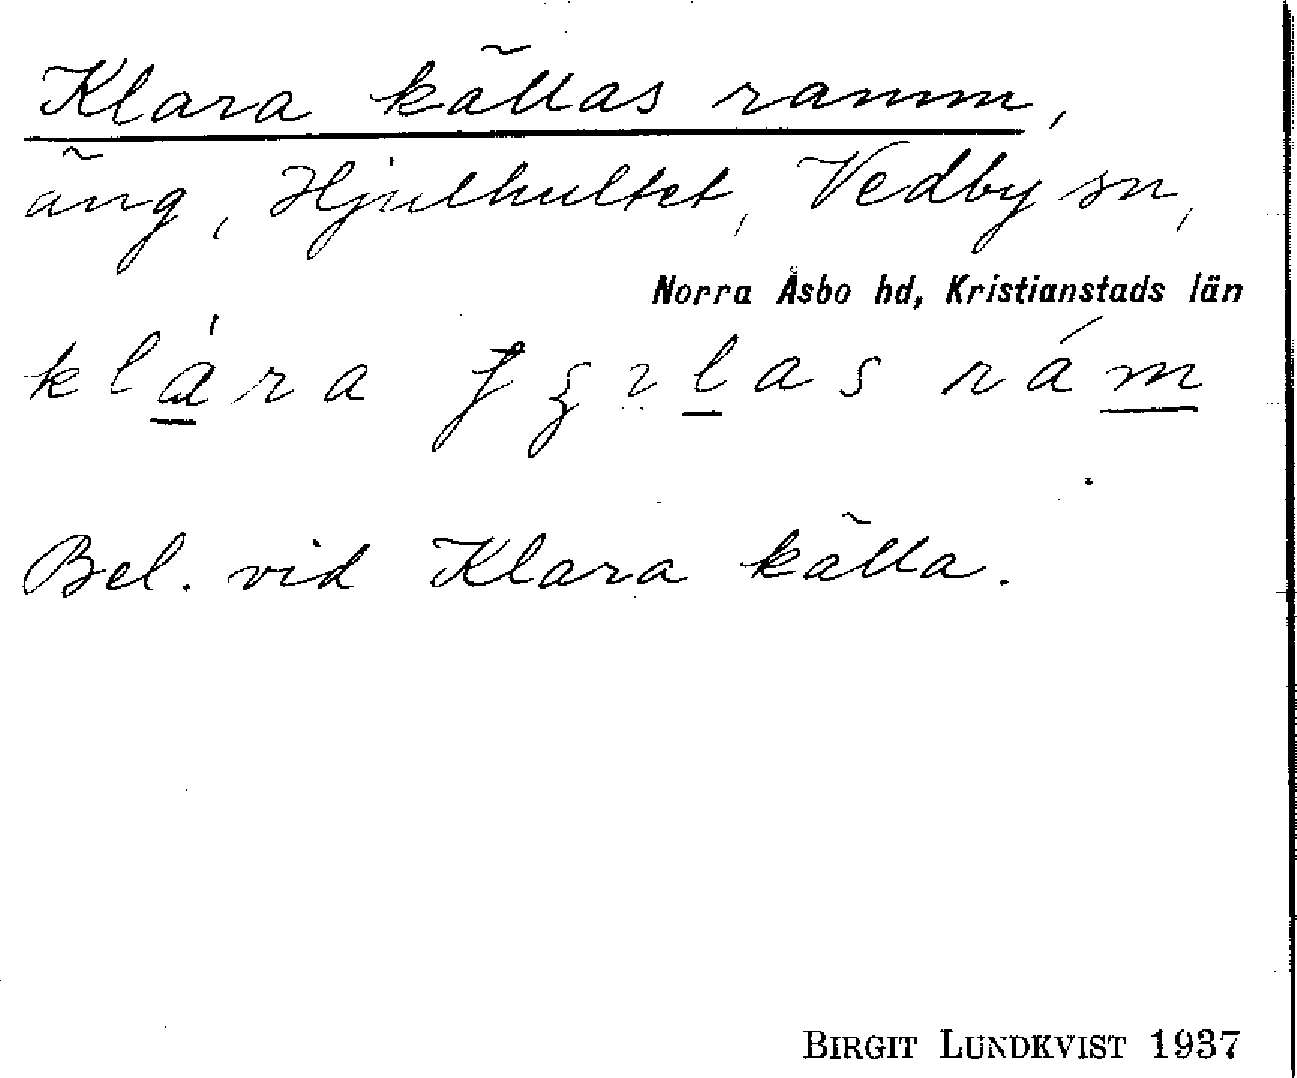 Klara källas ramm,
äng, Hjulhultet, Vedby sn,
Norra Åsbo hd, Kristianstads län
klára
Bel. vid Klara källa.
BIRGIT LUNDKVIST 1937